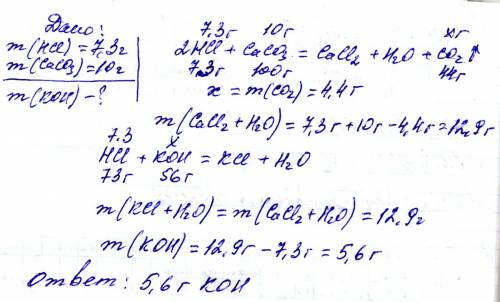 Дано:
m(HCl)=7,3г
m(CaCO3)=10г
m(KOH)-?
7,3г 10г xг
2HCl + CaCO3 = CaCl2 + H2O + CO2↑
7.3г 100г 44г
x = m(CO2)=4,4г
m(CaCl2+H2O)=7,3г+10г-4,4г=12,9г
7.3 x
HCl + KOH = KCl + H2O
73г 56г
m(KCl+H2O)=m(CaCl2+H2O)=12,9г
m(KOH)=12,9г-7,3г=5,6г
Ответ: 5,6г KOH